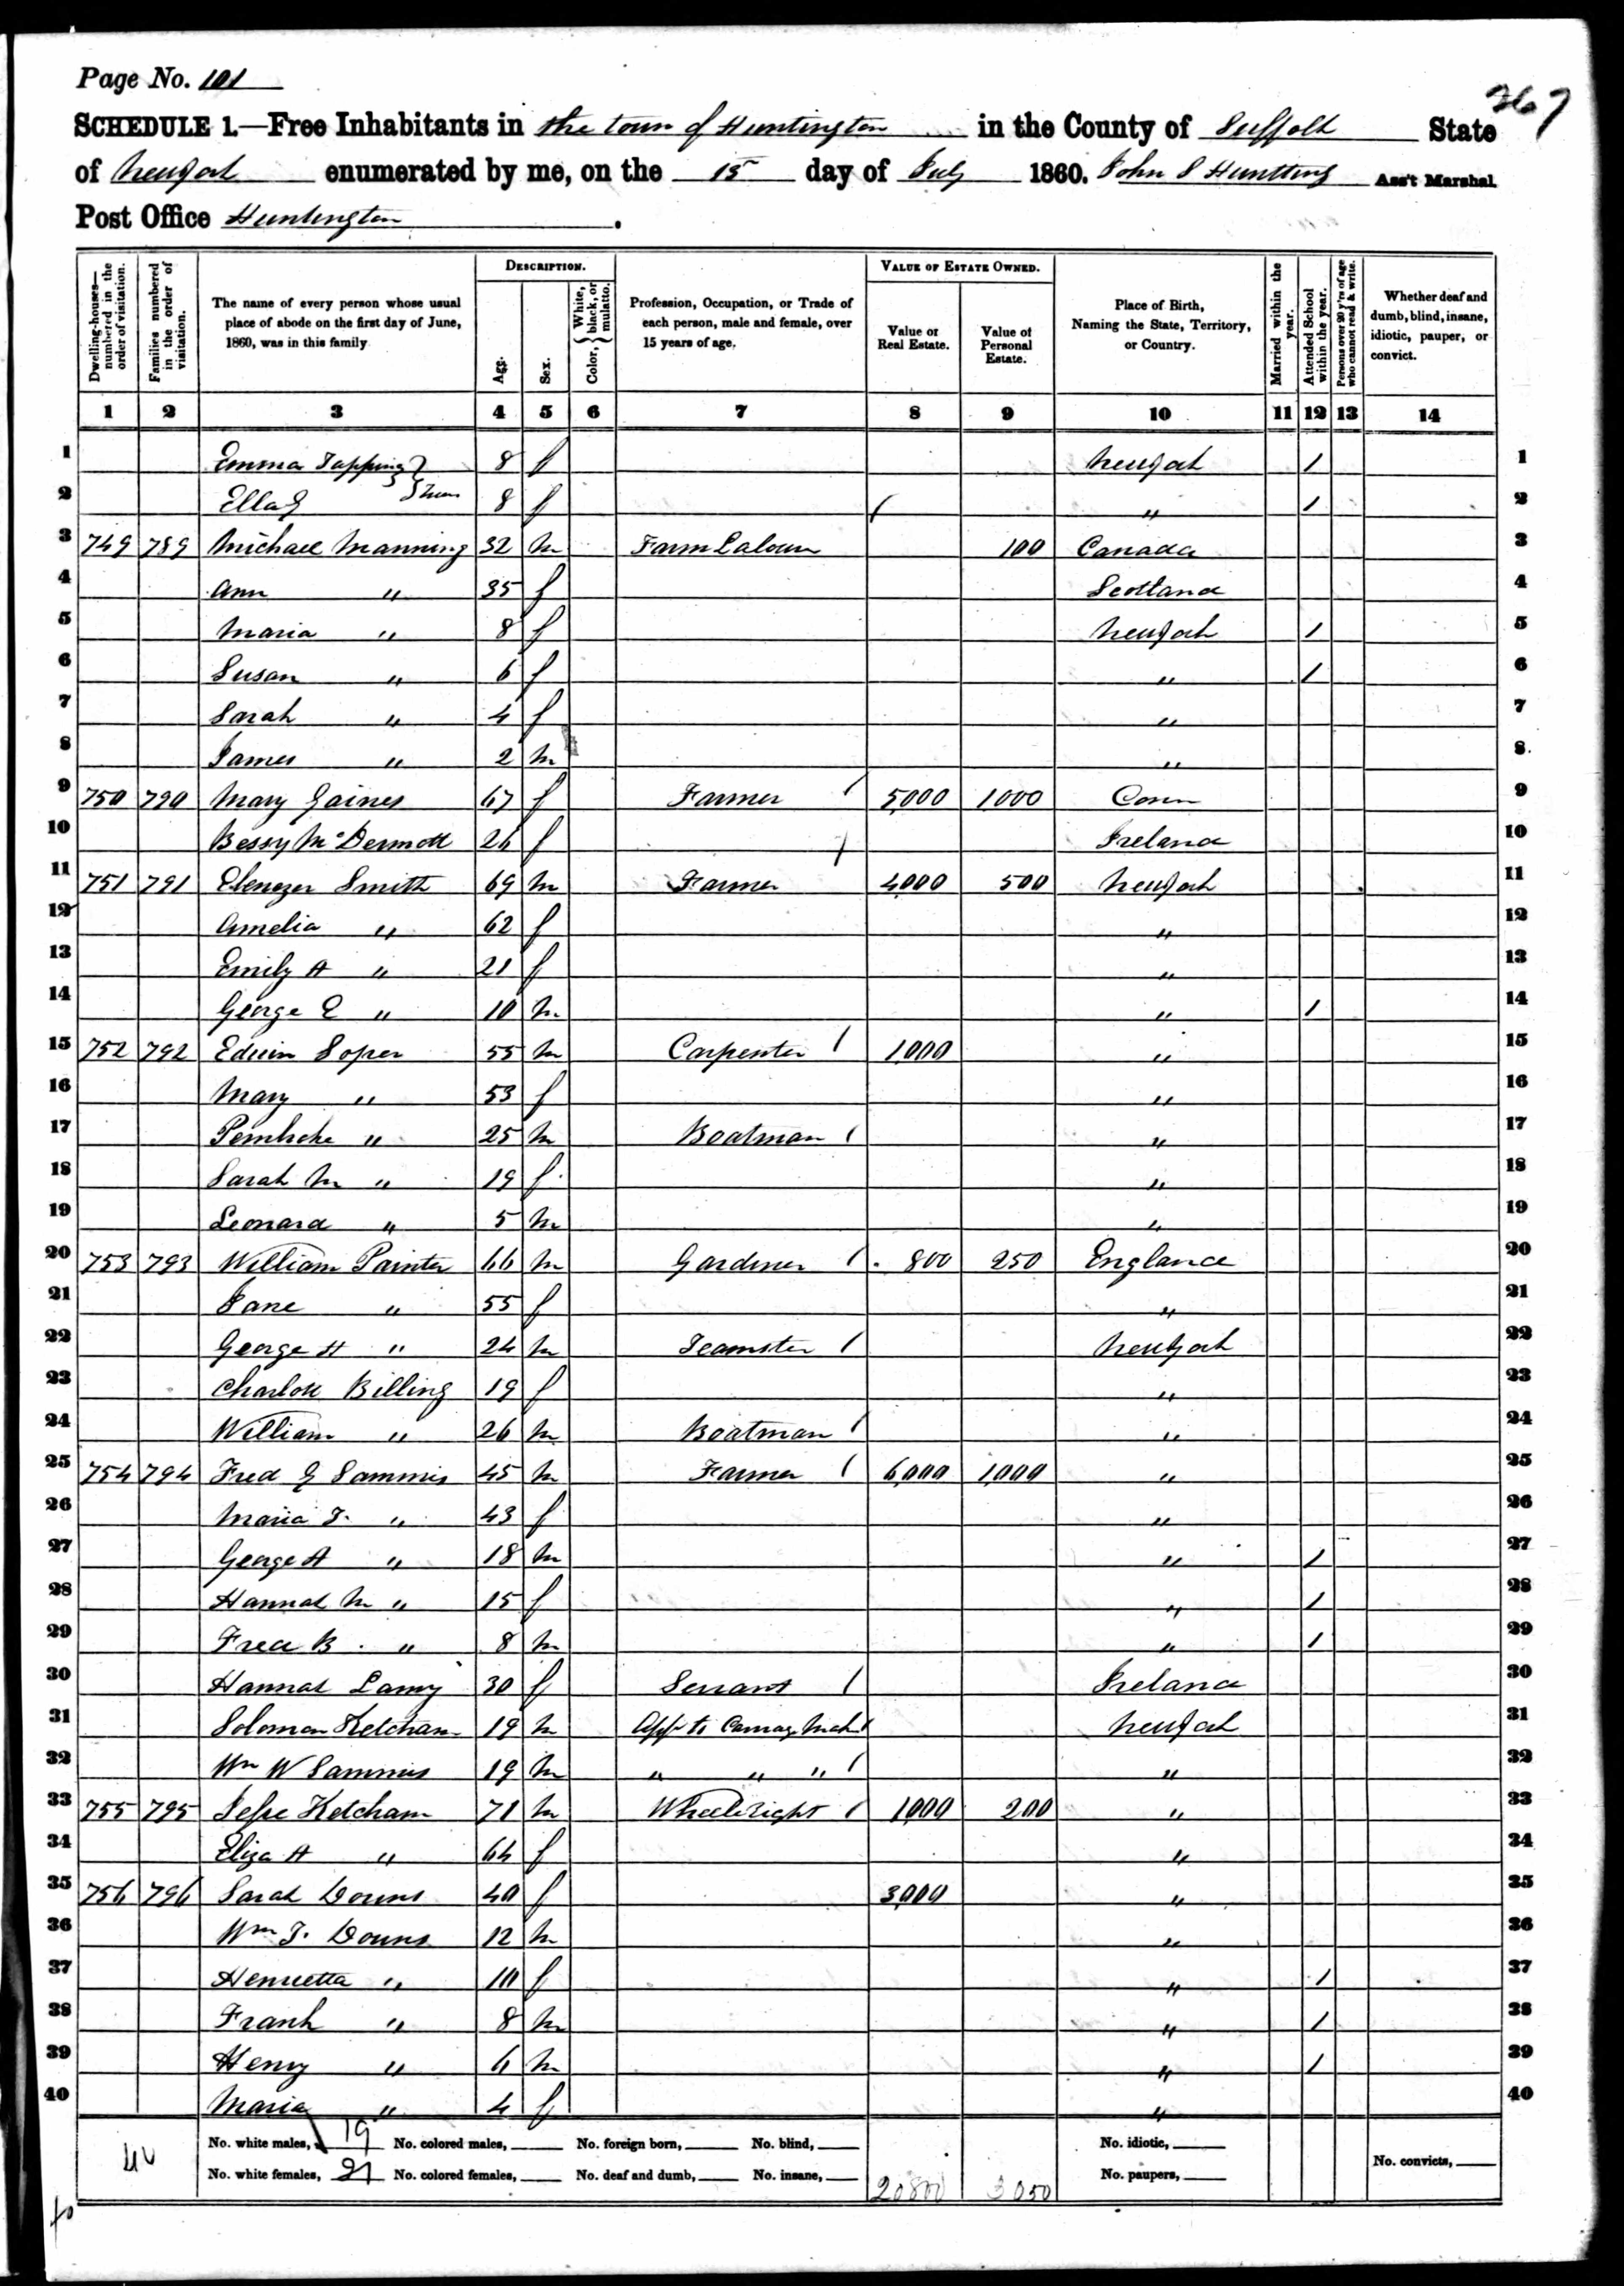 Page No. 101
267
SCHEDULE 1.—Free Inhabitants in the town of Huntington in the County of Suffolk State
of New York enumerated by me, on the 15 day of July 1860. John S Huntting Ass't Marshal
Post Office Huntington.
Dwelling-houses—numbered in the order of visitation.
Families numbered in the order of visitation.
The name of every person whose usual place of abode on the first day of June, 1860, was in this family
DESCRIPTION.
Age.
Sex.
Color, { White, black, or mulatto.
Profession, Occupation, or Trade of each person, male and female, over 15 years of age.
VALUE OF ESTATE OWNED.
Value of Real Estate.
Value of Personal Estate.
Place of Birth, Naming the State, Territory, or Country.
Married within the year.
Attended School within the year.
Persons over 20 y'rs of age who cannot read & write.
Whether deaf and dumb, blind, insane, idiotic, pauper, or convict.
1 2 3 4 5 6 7 8 9 10 11 12 13 14
1 Emma Tapping } 8 f New York / 1
2 Ella J } Twin 8 f " / 2
3 749 789 Michael Manning 32 m Farm Laborer 100 Canada 3
4 Ann " 35 f Scotland 4
5 Maria " 8 f New York / 5
6 Susan " 6 f " / 6
7 Sarah " 4 f " 7
8 James " 2 m " 8
9 750 790 Mary Gaines 67 f Farmer / 5,000 1000 Conn 9
10 Bessy McDermott 26 f Ireland 10
11 751 791 Ebenezer Smith 69 m Farmer / 4,000 500 New York 11
12 Amelia " 62 f " 12
13 Emily A " 21 f " 13
14 George E " 10 m " / 14
15 752 792 Edwin Soper 55 m Carpenter / 1,000 " 15
16 Mary " 53 f " 16
17 Pembroke " 25 m Boatman / " 17
18 Sarah M " 19 f " 18
19 Leonard " 5 m " 19
20 753 793 William Painter 66 m Gardner / 800 250 England 20
21 Jane " 55 f " 21
22 George H " 24 m Teamster / New York 22
23 Charlott Billing 19 f " 23
24 William " 26 m Boatman / " 24
25 754 794 Fred G Sammis 45 m Farmer / 6,000 1,000 " 25
26 Maria T. " 43 f " 26
27 George A " 18 m " / 27
28 Hannah M " 15 f " / 28
29 Fred B. " 8 m " / 29
30 Hannah 30 f Servant / Ireland 30
31 Solomon Ketcham 19 m App to Carriag Mak / New York 31
32 Wm W Sammis 19 m " " " / " 32
33 755 795 Jesse Ketcham 71 m Wheelright / 1,000 200 " 33
34 Eliza A " 64 f " 34
35 756 796 Sarah Downs 40 f 3,000 " 35
36 Wm T. Downs 12 m " 36
37 Henrietta " 10 f " / 37
38 Frank " 8 m " / 38
39 Henry " 6 m " / 39
40 Maria " 4 f " 40
40 No. white males, 19 No. colored males, No. foreign born, No. blind, No. idiotic,
No. white females, 21 No. colored females, No. deaf and dumb, No. insane, 20800 3050 No. paupers, No. convicts,